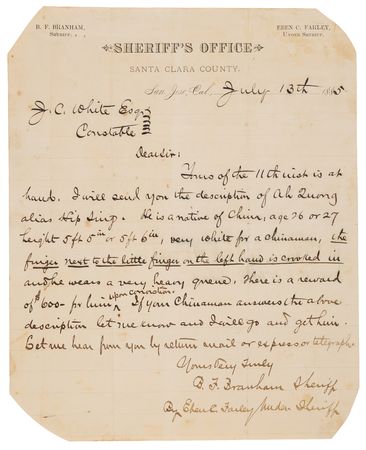 B. F. BRANHAM,
SHERIFF.
EBEN C. FARLEY,
UNDER SHERIFF.
SHERIFF'S OFFICE
SANTA CLARA COUNTY.
San Jose, Cal., July 13th 1885
J. C. White Esq
Constable
Dear Sir:
Yours of the 11th inst is at
hand. I will send you the description of Ah Quong
alias Hip Sing. He is a native of China, age 26 or 27
height 5 ft 5 in or 5 ft 6 in, very white for a chinaman, the
finger next to the little finger on the left hand is crooked in
and he wears a very heavy queue. There is a reward
of $600– for him upon conviction If your Chinaman answers the above
description let me know and I will go and get him.
Let me hear from you by return mail or express or telegraph
Yours Very Truly
B. F. Branham Sheriff
By Eben C. Farley Under Sheriff